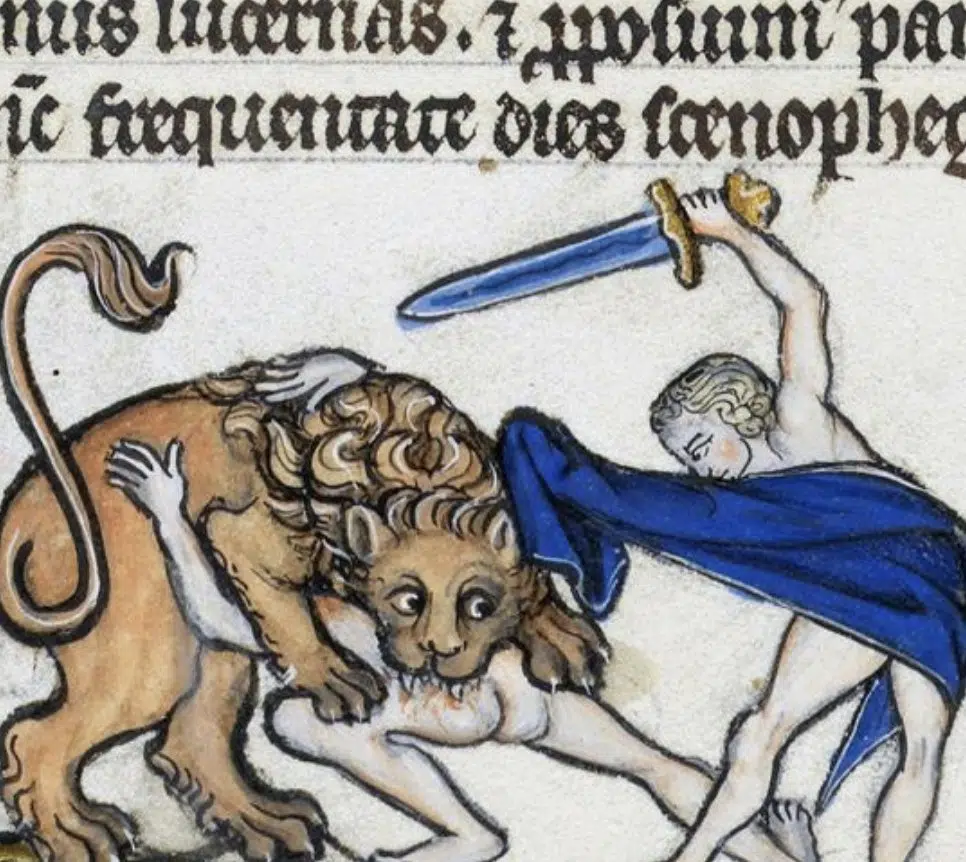 mus lucernas. ⁊ ꝓposuim᾿ pan
n̄c frequentate dies scenopheg